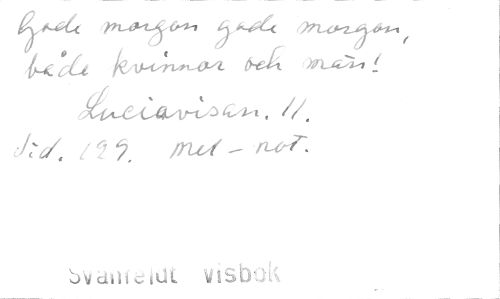 Gode morgon gode morgon,
både kvinnor och män!
Luciavisan. 11.
Sid. 129. Mel - not.
Svanfeldt visbok